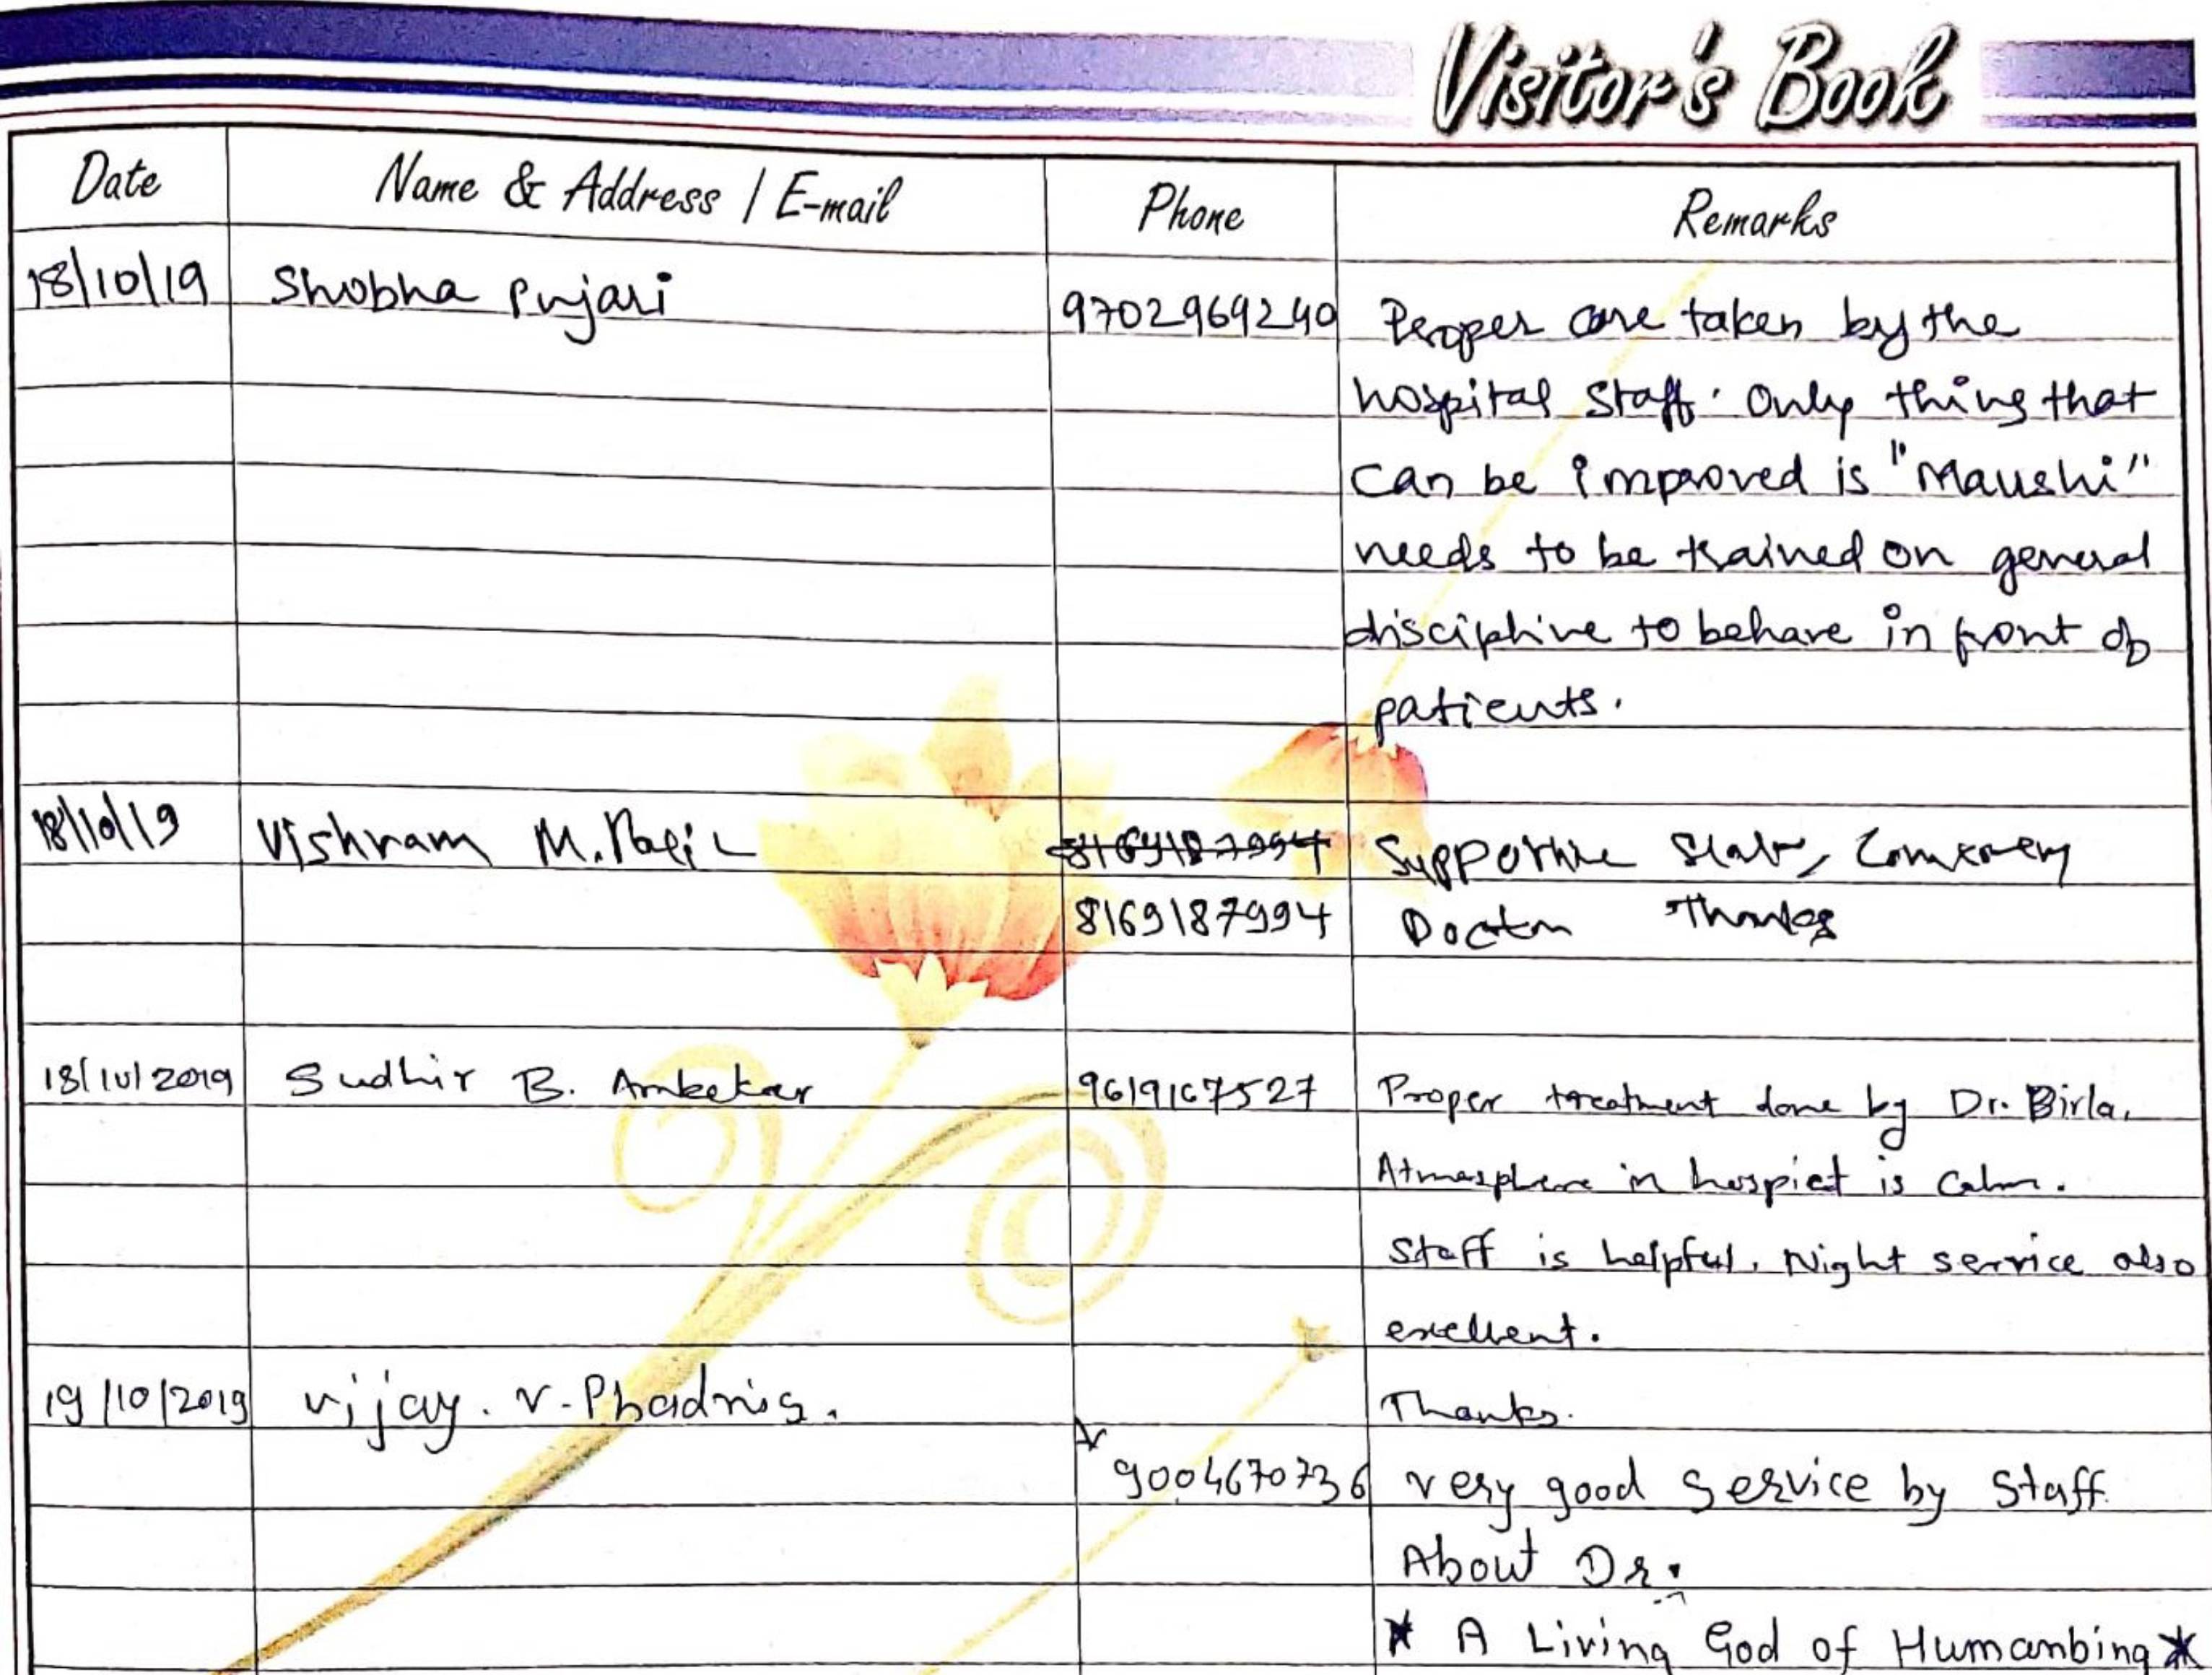 Visitor's Book
Date Name & Address / E-mail Phone Remarks
18/10/19 Shobha Pujari 9702969240 Proper care taken by the
hospital staff. Only thing that
can be improved is "Maushi"
needs to be trained on general
discipline to behave in front of
patients.
18/10/19 Vishram M. Supportive
8169187994 Doctor Thanks
18/10/2019 Sudhir B. Ambekar 9619167527 Proper treatment done by Dr. Birla.
Atmosphere in is calm.
Staff is helpful. Night service also
excellent.
19/10/2019 Vijay. V. Phadnis. Thanks.
9004670736 very good service by Staff
About Dr.
* A Living God of Humanbing *